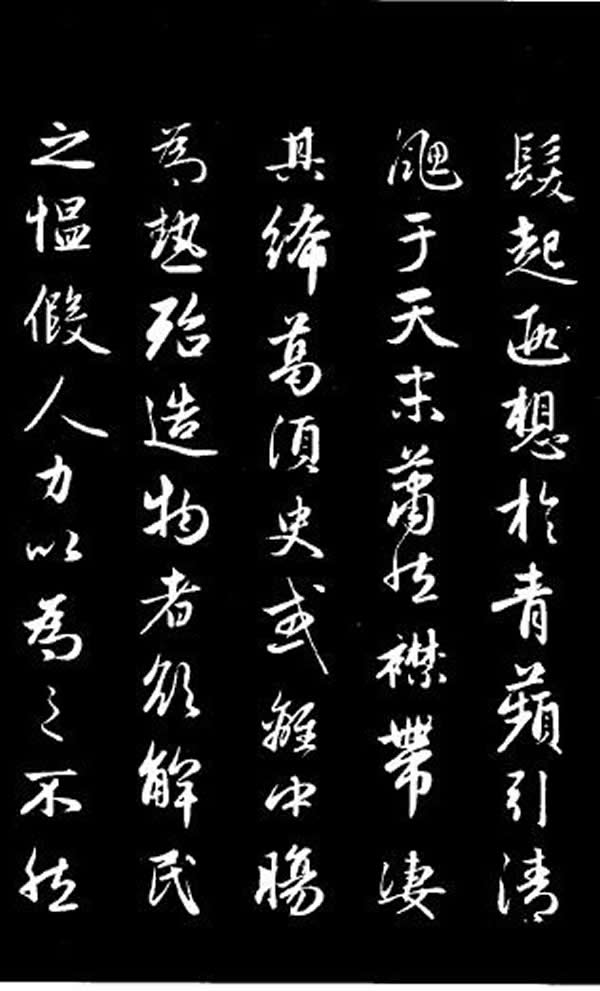 髮起遐想於青蘋引清
飔于天末蕭然襟帶淒
其絺葛須臾或離中腸
為熱殆造物者欲解民
之愠假人力以為之不然